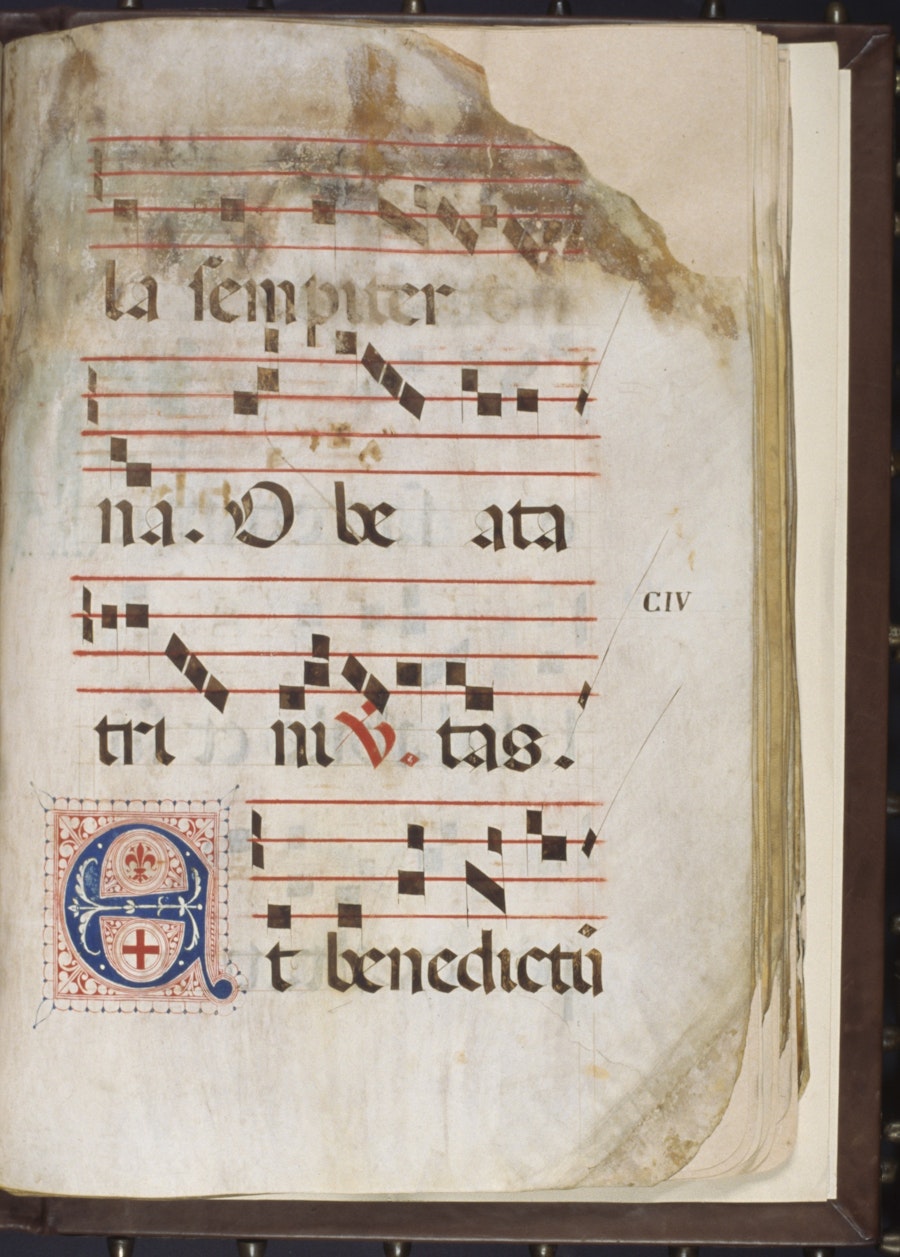 la sempiter
na. O be ata
tri ni℣. tas.
CIV
Et benedictū